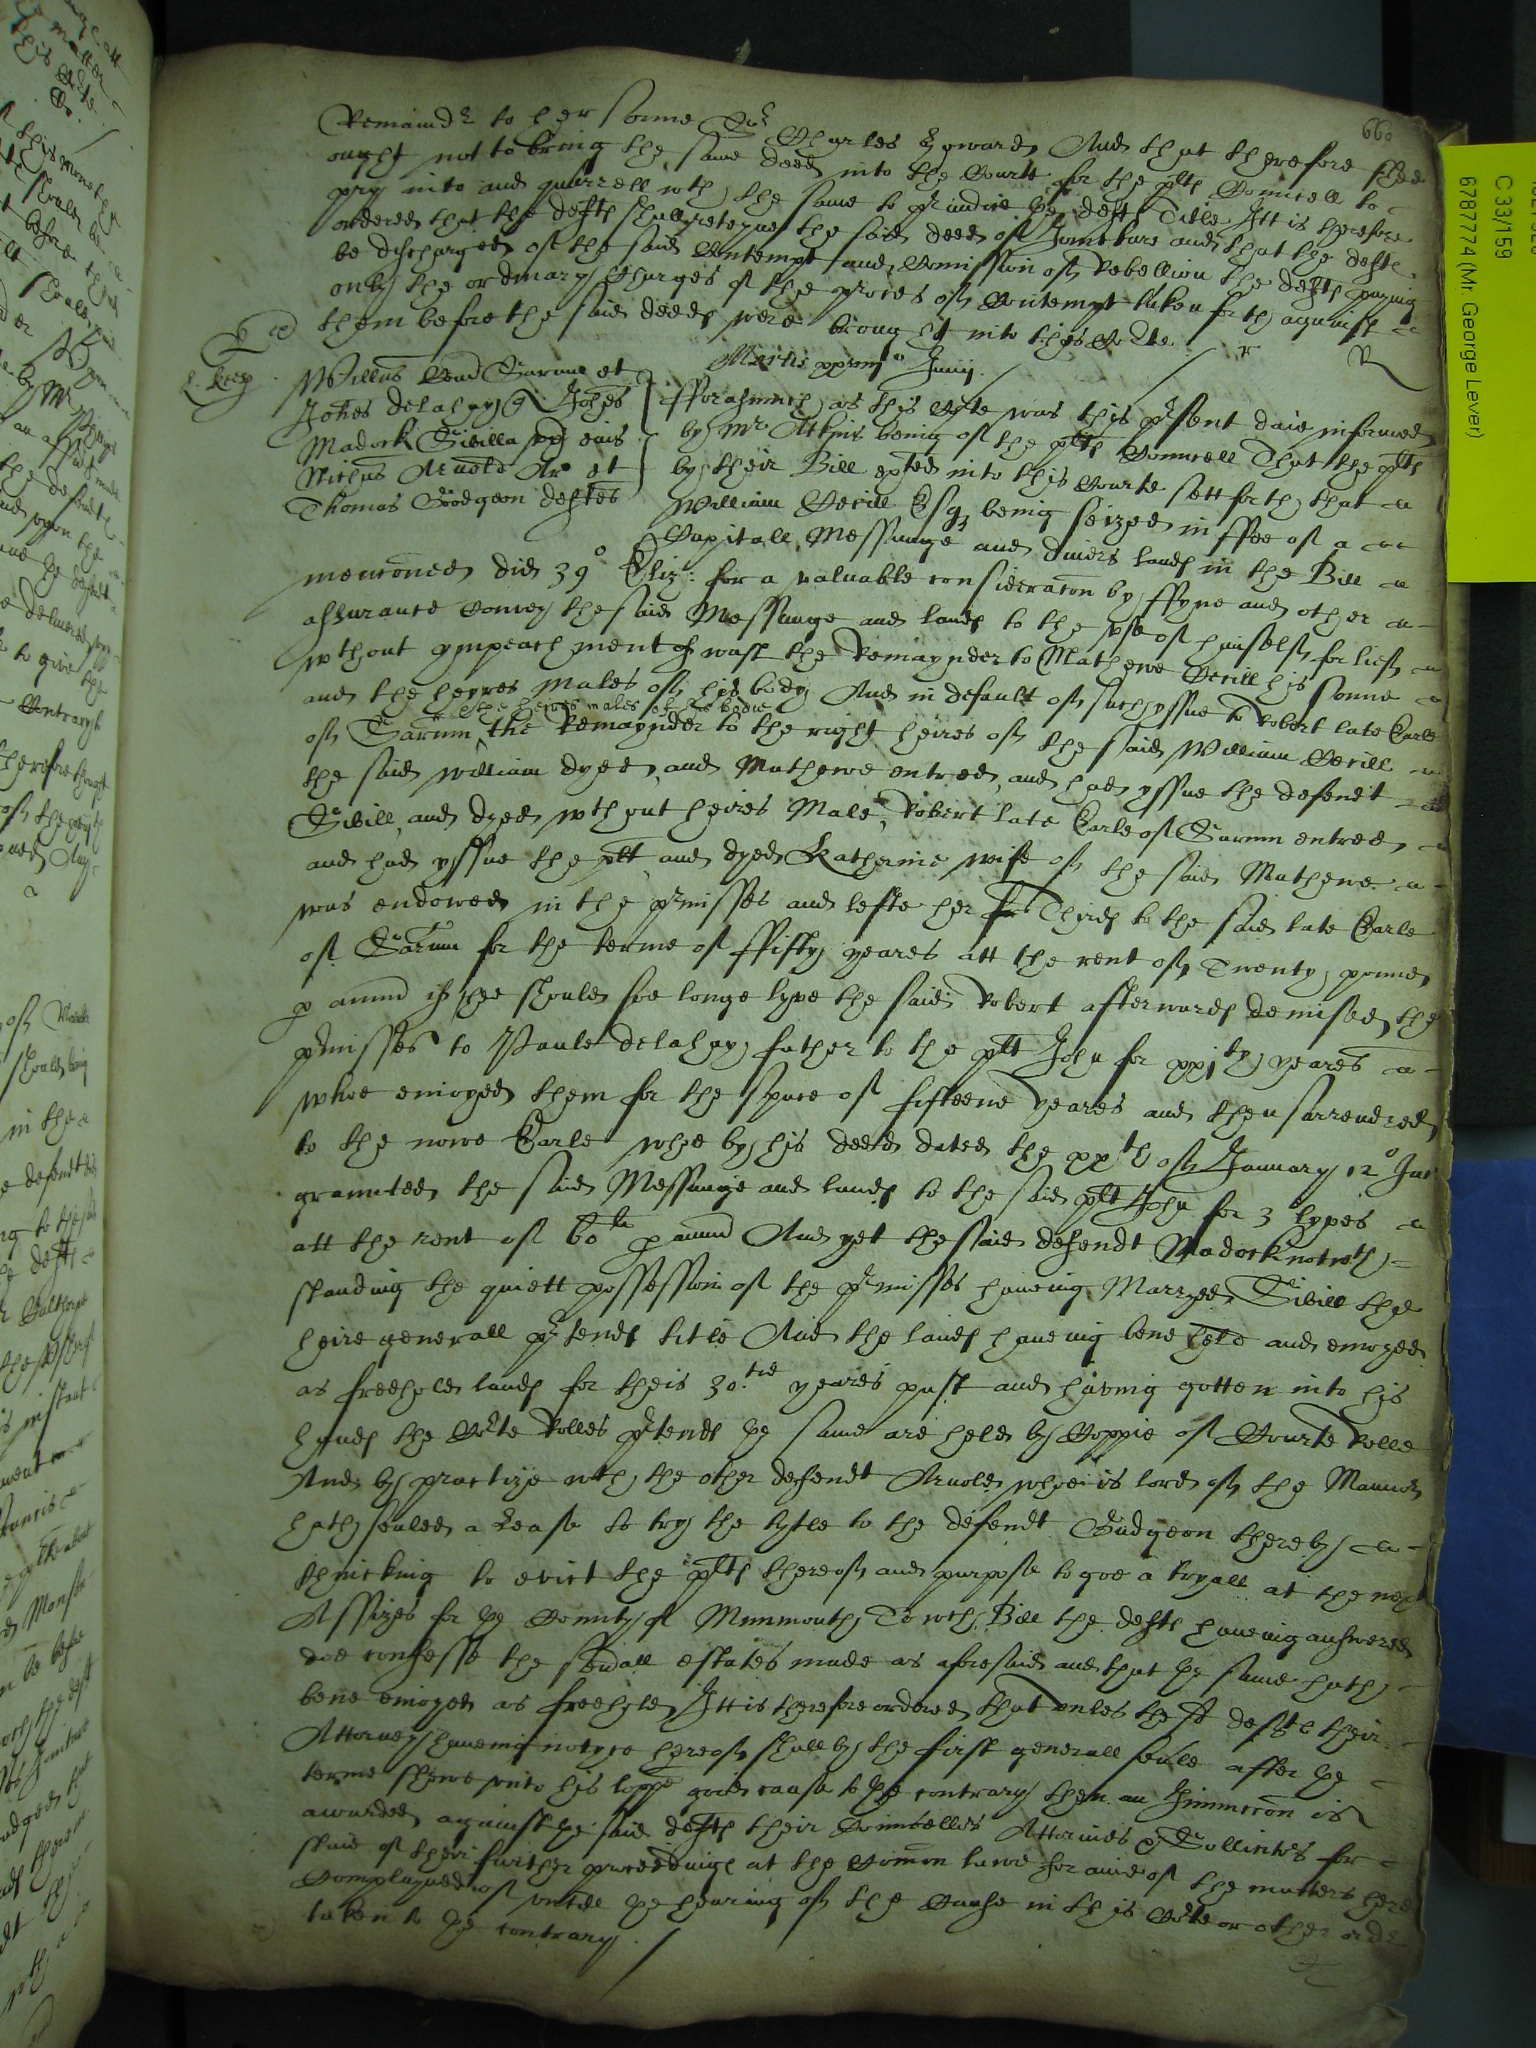 660
Remaindr to her sonne Sr Charles Haward And that therefore shee
ought not to bring the same deed into the Courte for the plts Councell to
pry into and quarrell wth the same to preiudice the defts Title Itt is therefore
ordered that the defts shall reteyne the said deed of Jointure and that the defts
be discharged of the said Contempt and Comission of Rebellion the defts paying
only the ordinary Charges of the proces of Contempt taken forth against
them before the said deeds were brought into this Corte
R
Martis primo Junij
Willus Comes Sarum et
Johes delahay qr Johes
Madock Sibilla ux eius
Nichus Arnold Ar et
Thomas Gudgeon deftes
fforasmuch as this Corte was this prsent daie informed
by Mr Atkins being of the plts Councell That the plts
by their Bill exhited into this Courte sett forth that
William Cecill Esq being seized in ffee of a
Capitall Messuage and divers lands in the Bill
mencioned did 39o Eliz: for a valuable consideracon by ffyne and other
assurance Convey the said Messuage and lands to the use of himselfe for lief
wthout ympeachment of wast the Remaynder to Mathewe Cecill his sonne
and the heyres Males of his body And in default of such yssue to Robert late Earle
the heires males of his bodie
of Sarum the Remaynder to the right heires of the said William Cecill
the said William dyed and Mathewe entred, and had yssue the defendt
Sibill, and dyed wthout heires Male, Robert late Earle of Sarum entred
and had yssue the plt and dyed Katherine wife of the said Mathewe
was endowed in the prmisses and lefte her Thirds to the said late Earle
of Sarum for the terme of ffifty yeares att the rent of Twenty pounds
p annu if shee should soe longe lyve the said Robert afterwards demised the
prmisses to Paule delahay father to the plt John for xxjty yeares
whoe enioyed them for the space of fifteene yeares and then surrendred
to the nowe Earle whoe by his deede dated the xxth of January 12o Jac
graunted the said Messuage and lands to the said plt John for 3 lyves
att the rent of 60li p annu And yet the said defendt Madock notwth
standing the quiett possession of the prmisses haveing Marryed Sibill the
heire generall prtends title And the lands haveing bene held and enioyed
as freehold lands for theis 30tie yeares past and having gotten into his
hands the Corte Rolles prtends ye same are held by Coppie of Courte Rolle
And by practize wth the other defendt Arnold whoe is lord of the Mannor
hath sealed a Lease to try the tytle to the defendt Gudgeon thereby
thincking to evict the plts thereof and purpose to goe a tryall at the next
Assizes for ye County of Munmouth To wch Bill the defts haveing answered
doe confesse the sevrall estates made as aforesaid and that ye same hath
bene enioyed as freehold Itt is therefore ordered that unles the sd defts their
Attorney haveing notyce hereof shall by the first generall seale after ye
terme shewe unto his lopp good cause to ye contrary then an Iniunccon is
awarded against ye said defts their Councellors Attornies & Sollicitors for
staie of their further proceedings at the Comon lawe for anie of the matters here
Complayned of untill ye hearing of the Cause in this Corte or other ordr
taken to ye contrary
C 33/159
6787774 (Mr. George Lever)